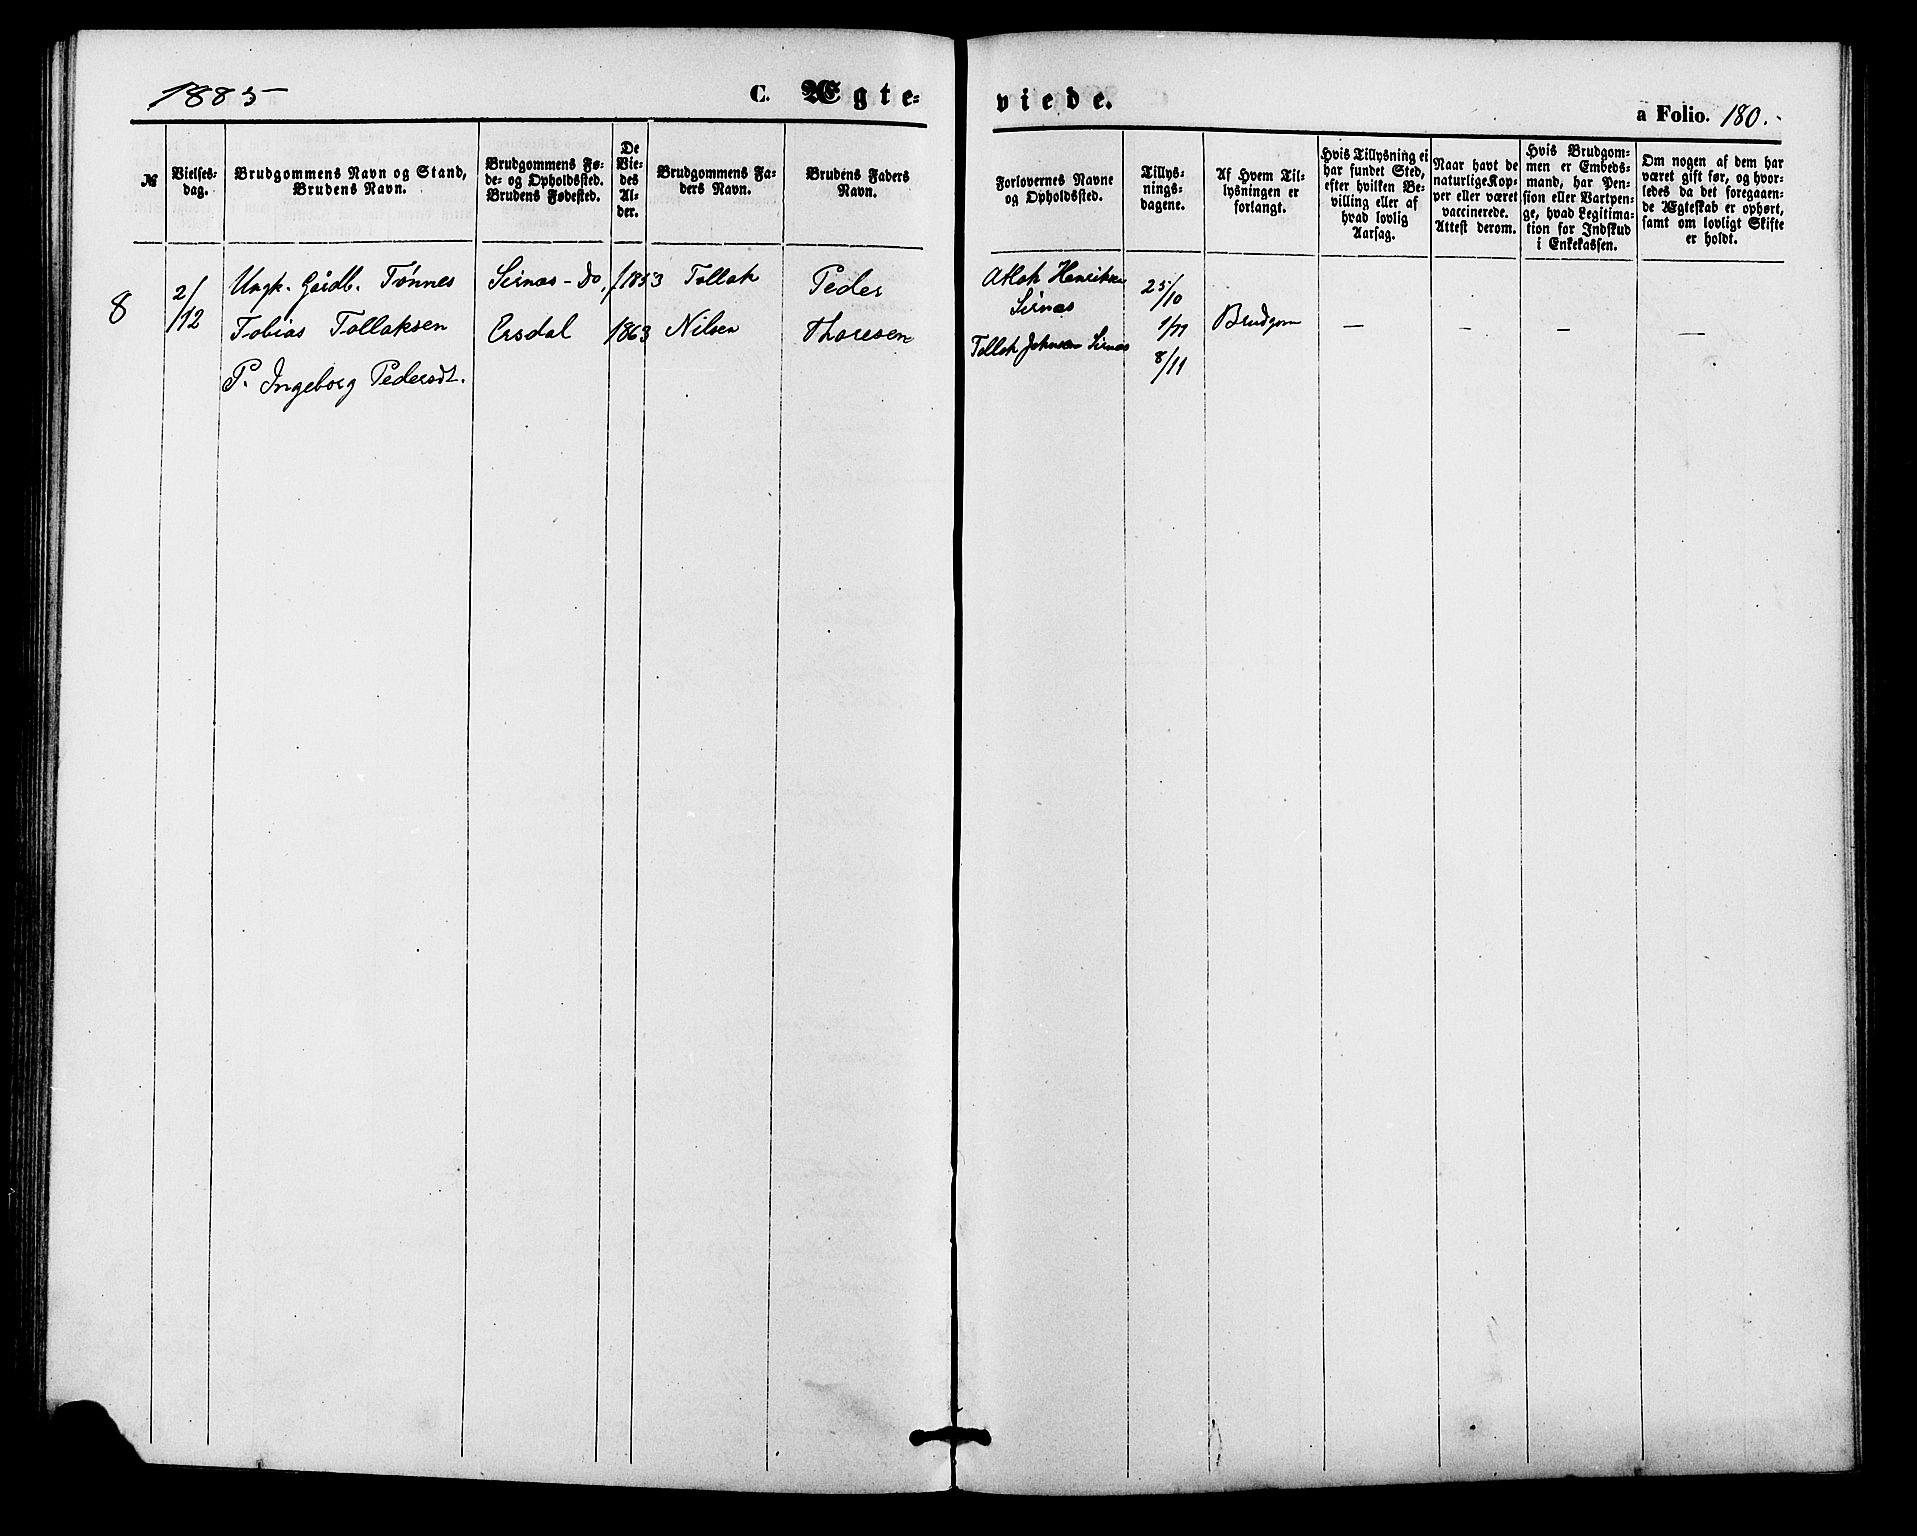 1885
C. Ægte-
viede.
a Folio. 180.
№
Vielses-
dag.
Brudgommens Navn og Stand,
Brudens Navn.
Brudgommens Fø-
de- og Opholdssted.
Brudens Fødested.
De
Vie-
des
Al-
der.
Brudgommens Fa-
ders Navn.
Brudens Faders
Navn.
Forlovernes Navne
og Opholdssted.
Tillys-
nings-
dagene.
Af Hvem Til-
lysningen er
forlangt.
Hvis Tillysning ei
har fundet Sted,
efter hvilken Be-
villing eller af
hvad lovlig
Aarsag.
Naar havt de
naturlige Kop-
per eller været
vaccinerede.
Attest derom.
Hvis Brudgom-
men er Embeds-
mand, har Pen-
sion eller Vartpen-
ge, hvad Legitima-
tion for Indskud
i Enkekassen.
Om nogen af dem har
været gift før, og hvor-
ledes da det foregaaen-
de Ægteskab er ophørt,
samt om lovligt Skifte
er holdt.
8
2/
/12
Ungk. Gårdb. Tønnes
Tobias Tollaksen
P. Ingeborg Pedersdt.
Sirnæs - Do.
Ersdal
1853
1863
Tollak
Nilsen
Peder
Thoresen
Atlak Henriksen
Sirnæs
Tollak Johnsen Sirnæs
25/10
1/11
8/11
Brudgom
— — — —